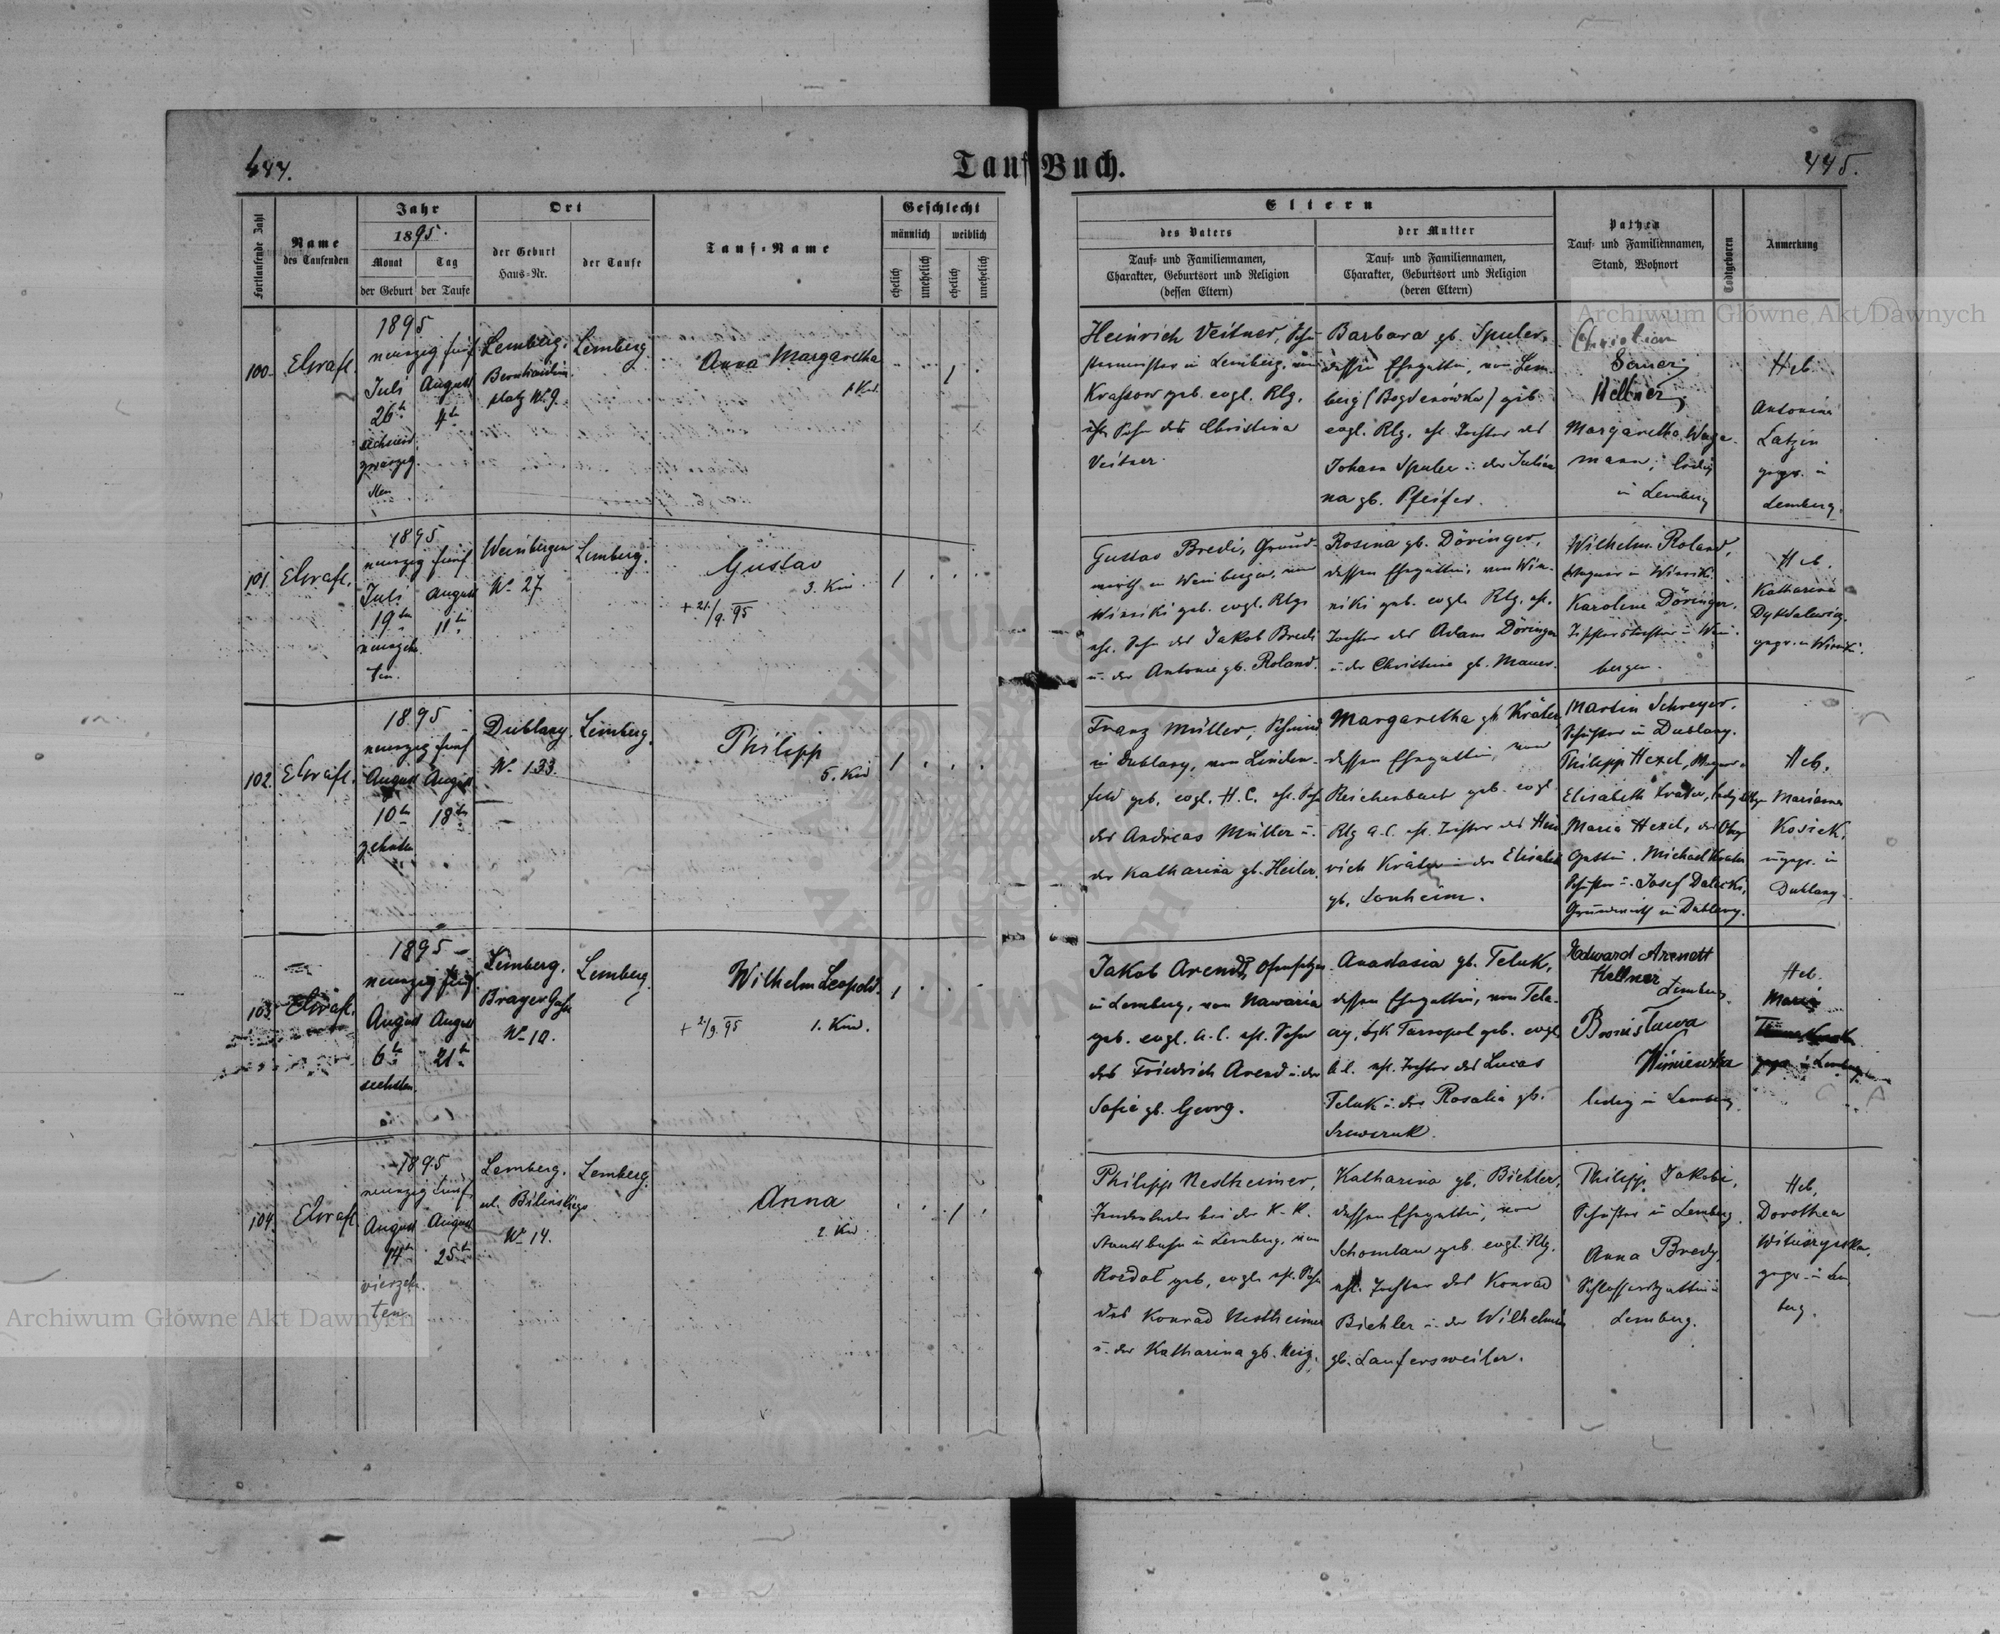 444.
Tauf Buch.
445.
Fortlaufende Zahl
Name
des Taufenden
Jahr
1895.
Monat
Tag
der Geburt
der Taufe
Ort
der Geburt
Haus-Nr.
der Taufe
Tauf-Name
Geschlecht
männlich
weiblich
ehelich
unehelich
ehelich
unehelich
Eltern
des Vaters
Tauf- und Familiennamen,
Charakter, Geburtsort und Religion
(dessen Eltern)
der Mutter
Tauf- und Familiennamen,
Charakter, Geburtsort und Religion
(deren Eltern)
Pathen
Tauf- und Familiennamen,
Stand, Wohnort
Todtgeboren
Anmerkung
Archiwum Główne Akt Dawnych
100.
1895
neunzig fünf
Juli
26t
August
4t
Lemberg.
Bernhardin
platz No 9.
Lemberg.
Anna Margaretha
1
Heinrich Veitner,
in Lemberg, von
Krassow geb. evgl. Rlg.
Sohn der Christina
Veitner.
Barbara gb. Spuler,
dessen Ehegattin, von Lem-
berg (Bogdanówka) geb.
evgl. Rlg. ehl. Tochter des
Johann Spuler u. der Julia
na gb. Pfeifer.
Christian
Kellner,
Margaretha
mann, ledig
in Lemberg
Heb.
Antonina
Latzin
gepr. in
Lemberg.
101.
1895
neunzig fünf
Juli
19tn
neunzehn
ten.
August
11tn
Weinbergen
No 27
Lemberg.
Gustav
3. Kind
+ 21./9. 95
1
Gustav Bredi, Grund-
wirth in Weinbergen, von
Winniki geb. evgl. Rlg.
ehl. Sohn des Jakob Bredi
u. der Antonie gb. Roland.
Rosina gb. Döringer,
dessen Ehegattin, von Win-
niki geb. evgl. Rlg. ehl.
Tochter des Adam Döringer
u. der Christine gb. Mauer.
Wilhelm Roland,
Wagner in Winniki.
Karoline Döringer,
Tischlerstochter in Wein-
bergen.
Heb.
Katharina
gepr. in Winniki.
102.
1895
neunzig fünf
August
10tn
zehnten
August
18tn
Dublany.
No 133
Lemberg.
Philipp
5. Kind
1
Franz Müller, Schmied
in Dublany, von Linden-
feld geb. evgl. H.C. ehl. Sohn
des Andreas Müller u.
der Katharina gb. Heiler.
Margaretha gb. Kräter
dessen Ehegattin, von
Reichenbach geb. evgl.
Rlg A.C. ehl. Tochter des Hein
rich Kräter u. der Elisabeth
gb. Lonheim.
Martin Schreyer,
Schuster in Dublany.
Philipp Hexel, Wagner u
Elisabeth Krater,
Maria Hexel,
Gattin. Michael Krater
Schuster u. Josef
Grundwirth in Dublany.
Heb.
Marianna
Kosiek,
ungepr. in
Dublany.
103.
1895
neunzig fünf
August
6tn
sechsten.
August
21tn
Lemberg.
Brayer Gasse
No 10.
Lemberg.
Wilhelm Leopold.
1. Kind.
+ 2/9. 95
1
Jakob Arendt, Ofensetzer
in Lemberg, von Nawaria
geb. evgl. A.C. ehl. Sohn
des Friedrich Arend u. der
Sofie gb. Georg.
Anastasia gb. Teluk,
dessen Ehegattin, von Tela-
Tarnopol geb. evgl.
A.C. ehl. Tochter des Lucas
Teluk u. der Rosalia gb.
Edward
Kellner
Lemberg.
Bronisława
Wisniewska
ledig in Lemberg.
Heb.
Maria
gepr. in Lemberg
104.
1895
neunzig fünf
August
14tn
vierzehn
ten.
August
25tn
Lemberg.
ul. Bilinskiego
No 14.
Lemberg.
Anna
2. Kind
1
Philipp Nestheimer,
bei der K. K.
Staatsbahn in Lemberg, von
geb. evgl. ehl. Sohn
des Konrad Nestheimer
u. der Katharina gb.
Katharina gb. Bichler,
dessen Ehegattin, von
Schomlau geb. evgl. Rlg.
ehl. Tochter des Konrad
Bichler u. der Wilhelmin
gb. Laufersweiler.
Philipp Jakobi,
Schuster in Lemberg.
Anna Bredy,
Schlossersgattin in
Lemberg.
Heb.
Dorothea
gepr. in Lem
berg.
Archiwum Główne Akt Dawnych